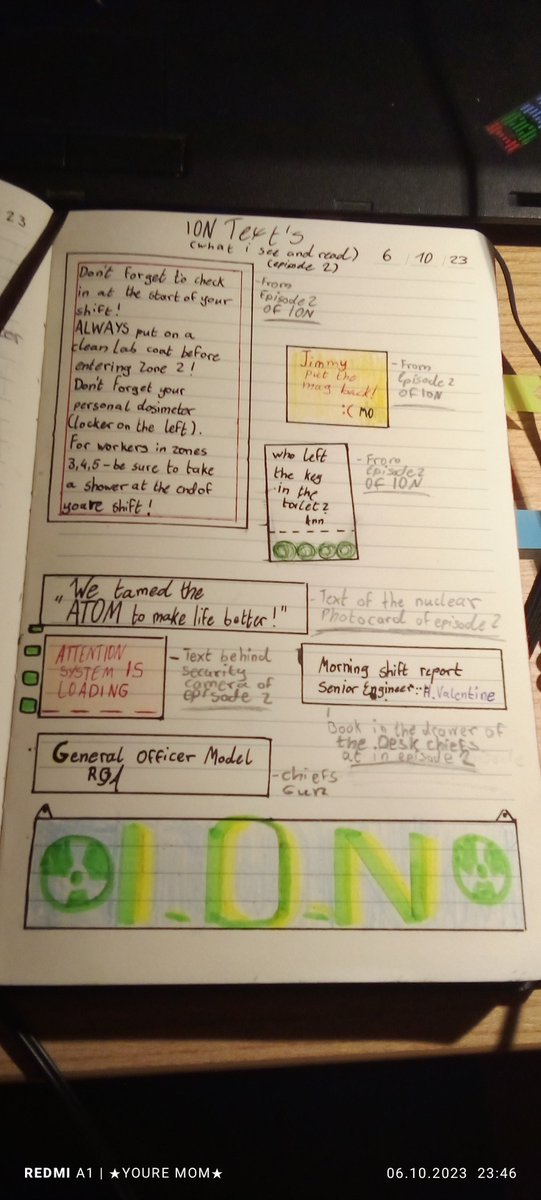 23
ION Text's
(what i see and read)
(episode 2)
6 / 10 / 23
Don't forget to check
in at the start of your
shift!
ALWAYS put on a
clean Lab coat before
entering Zone 2!
Don't forget your
personal dosimeter
(locker on the left).
For workers in zones
3,4,5 - be sure to take
a shower at the end of
youre shift!
-From
Episode 2
OF ION
Jimmy
put the
mag back!
:( MO
-From
Episode 2
OF ION
who left
the key
in the
toilet?
Ann
-From
Episode 2
OF ION
"We tamed the
ATOM to make life better!"
-Text of the nuclear
Photocard of episode 2
ATTENTION
SYSTEM IS
LOADING
-Text behind
security
camera of
episode 2
Morning shift report
Senior Engineer: A.Valentine
Book in the drawer of
the Desk chiefs
at in episode 2
General Officer Model
-chiefs
Gun
I.O.N
REDMI A1 | ★YOURE MOM★
06.10.2023 23:46